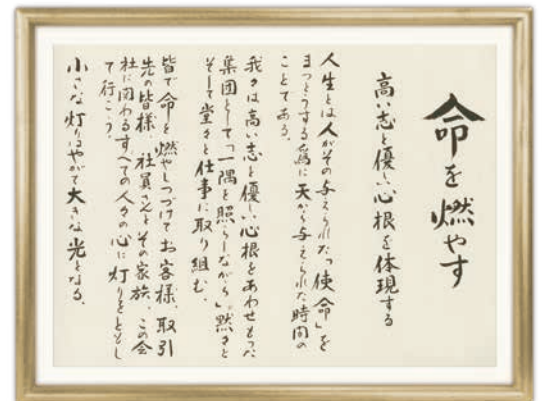 命を燃やす
高い志と優しい心根を体現する
人生とは人がその与えられた「使命」を
まっとうする為に天から与えられた時間の
ことである。
我々は高い志と優しい心根をあわせもった
集団として「一隅を照らしながら」黙々と
そして堂々と仕事に取り組む。
皆で命を燃やしつづけてお客様、取引
先の皆様、社員さんとその家族、この会
社に関わるすべての人々の心に灯りをともし
て行こう。
小さな灯りはやがて大きな光となる。